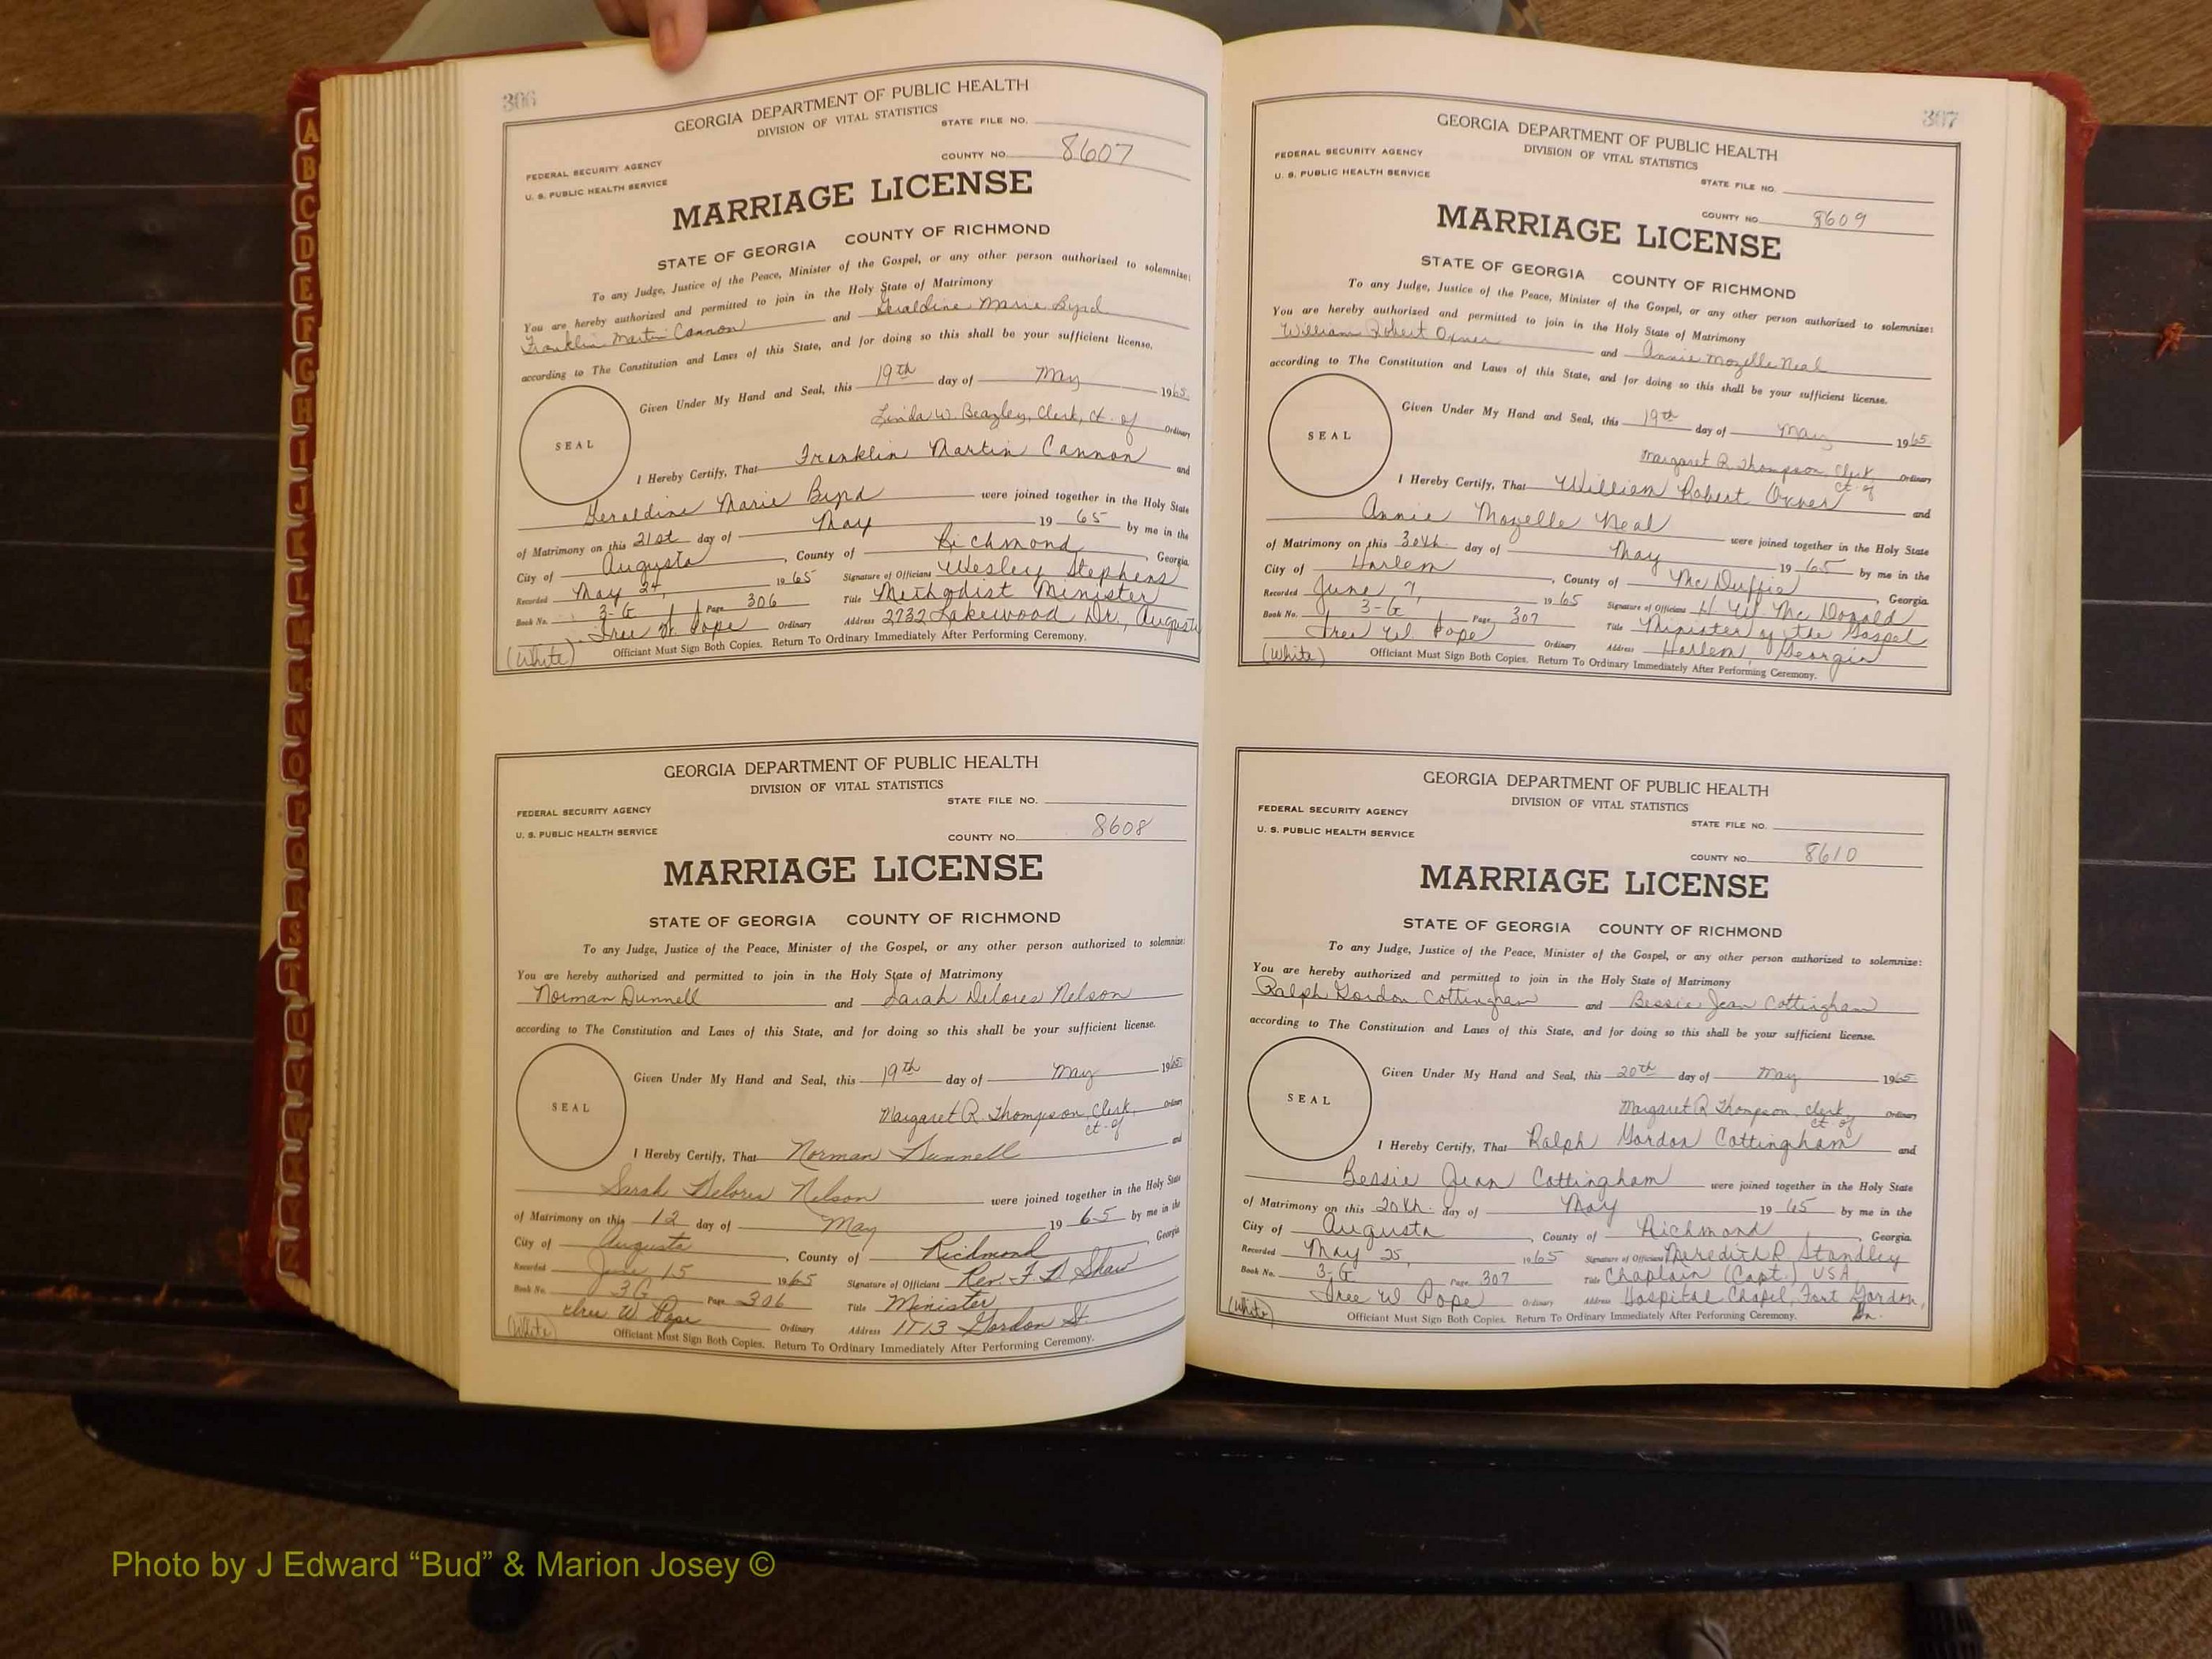 306
GEORGIA DEPARTMENT OF PUBLIC HEALTH
DIVISION OF VITAL STATISTICS
STATE FILE NO.
FEDERAL SECURITY AGENCY
U. S. PUBLIC HEALTH SERVICE
COUNTY NO. 8607
MARRIAGE LICENSE
STATE OF GEORGIA COUNTY OF RICHMOND
To any Judge, Justice of the Peace, Minister of the Gospel, or any other person authorized to solemnize:
You are hereby authorized and permitted to join in the Holy State of Matrimony
Franklin Martin Cannon and Geraldine Marie Byrd
according to The Constitution and Laws of this State, and for doing so this shall be your sufficient license.
Given Under My Hand and Seal, this 19th day of May 1965
SEAL
Linda W. Beazley, Clerk, Ct. of Ordinary
I Hereby Certify, That Franklin Martin Cannon and
Geraldine Marie Byrd were joined together in the Holy State
of Matrimony on this 21st day of May 19 65 by me in the
City of Augusta, County of Richmond, Georgia.
Recorded May 24, 1965 Signature of Officiant Wesley Stephens
Book No. 3-G Page 306 Title Methodist Minister
W. Pope Ordinary Address 2732 Lakewood Dr., Augusta
(White) Officiant Must Sign Both Copies. Return To Ordinary Immediately After Performing Ceremony.
GEORGIA DEPARTMENT OF PUBLIC HEALTH
DIVISION OF VITAL STATISTICS
STATE FILE NO.
FEDERAL SECURITY AGENCY
U. S. PUBLIC HEALTH SERVICE
COUNTY NO. 8608
MARRIAGE LICENSE
STATE OF GEORGIA COUNTY OF RICHMOND
To any Judge, Justice of the Peace, Minister of the Gospel, or any other person authorized to solemnize:
You are hereby authorized and permitted to join in the Holy State of Matrimony
Norman Dunnell and Sarah Delores Nelson
according to The Constitution and Laws of this State, and for doing so this shall be your sufficient license.
Given Under My Hand and Seal, this 19th day of May 1965
SEAL
Margaret R. Thompson, Clerk, Ct. of Ordinary
I Hereby Certify, That Norman Dunnell and
Sarah Delores Nelson were joined together in the Holy State
of Matrimony on this 12 day of May 19 65 by me in the
City of Augusta, County of Richmond, Georgia
Recorded June 15 1965 Signature of Officiant Rev. F. D. Shaw
Book No. 3G Page 306 Title Minister
W. Pope Ordinary Address 1713 Gordon St.
(White) Officiant Must Sign Both Copies. Return To Ordinary Immediately After Performing Ceremony.
307
GEORGIA DEPARTMENT OF PUBLIC HEALTH
DIVISION OF VITAL STATISTICS
FEDERAL SECURITY AGENCY
U. S. PUBLIC HEALTH SERVICE
STATE FILE NO.
COUNTY NO. 8609
MARRIAGE LICENSE
STATE OF GEORGIA COUNTY OF RICHMOND
To any Judge, Justice of the Peace, Minister of the Gospel, or any other person authorized to solemnize:
You are hereby authorized and permitted to join in the Holy State of Matrimony
William Robert Oxner and Annie Mozelle Neal
according to The Constitution and Laws of this State, and for doing so this shall be your sufficient license.
Given Under My Hand and Seal, this 19th day of May 1965
SEAL
Margaret R. Thompson, Clerk Ct. of Ordinary
I Hereby Certify, That William Robert Oxner and
Annie Mozelle Neal were joined together in the Holy State
of Matrimony on this 30th day of May 19 65 by me in the
City of Harlem, County of McDuffie, Georgia.
Recorded June 7, 1965 Signature of Officiant H. W. McDonald
Book No. 3-G Page 307 Title Minister of the Gospel
W. Pope Ordinary Address Harlem, Georgia
(White) Officiant Must Sign Both Copies. Return To Ordinary Immediately After Performing Ceremony.
GEORGIA DEPARTMENT OF PUBLIC HEALTH
DIVISION OF VITAL STATISTICS
FEDERAL SECURITY AGENCY
U. S. PUBLIC HEALTH SERVICE
STATE FILE NO.
COUNTY NO. 8610
MARRIAGE LICENSE
STATE OF GEORGIA COUNTY OF RICHMOND
To any Judge, Justice of the Peace, Minister of the Gospel, or any other person authorized to solemnize:
You are hereby authorized and permitted to join in the Holy State of Matrimony
Ralph Gordon Cottingham and Bessie Jean Cottingham
according to The Constitution and Laws of this State, and for doing so this shall be your sufficient license.
Given Under My Hand and Seal, this 20th day of May 1965
SEAL
Margaret R. Thompson, Clerk, Ct. of Ordinary
I Hereby Certify, That Ralph Gordon Cottingham and
Bessie Jean Cottingham were joined together in the Holy State
of Matrimony on this 20th. day of May 19 65 by me in the
City of Augusta, County of Richmond, Georgia.
Recorded May 25, 1965 Signature of Officiant Meredith R. Standley
Book No. 3-G Page 307 Title Chaplain (Capt.) USA
W. Pope Ordinary Address Hospital Chapel, Fort Gordon, Ga.
(White) Officiant Must Sign Both Copies. Return To Ordinary Immediately After Performing Ceremony.
Photo by J Edward “Bud” & Marion Josey ©